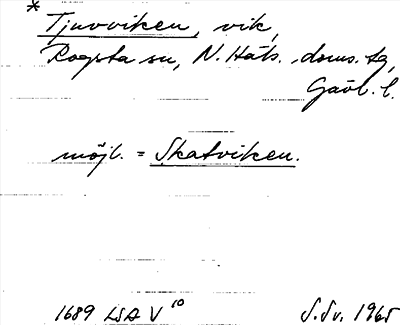 * Tjuvviken, vik,
Rogsta sn, N. Häls. doms. tg,
Gävl. l.
möjl. = Skatviken.
1689 LSA V 10 S. Sv. 1965